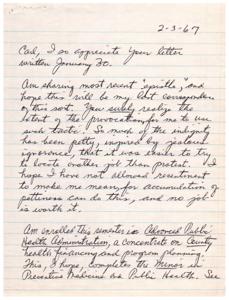 2-3-67
Carl, I so appreciate your letter
written January 30.
Am sharing most recent "epistle" and
hope this will be my last correspondence
of this sort. You surely realize the
extent of the provocation for me to use
such tactic. So much of the indignity
has been petty, inspired by jealous
ignorance, that it was easier to try
to locate another job than protest. I
hope I have not allowed resentment
to make me mean, for accumulation of
pettiness can do this, and no job
is worth it.
Am enrolled this semester in Advanced Public
Health Administration, a concentrate on County
health financing and program planning.
This, I hope, completes the Minor in
Preventive Medicine and Public Health. See